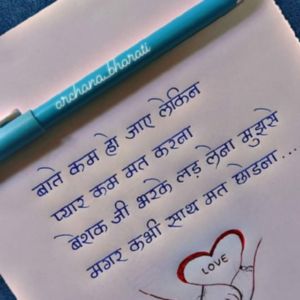 archana_bharati
बाते कम हो जाए लेकिन
प्यार कम मत करना
बेशक जी भरके लड़ लेना मुझसे
मगर कभी साथ मत छोडना...
LOVE